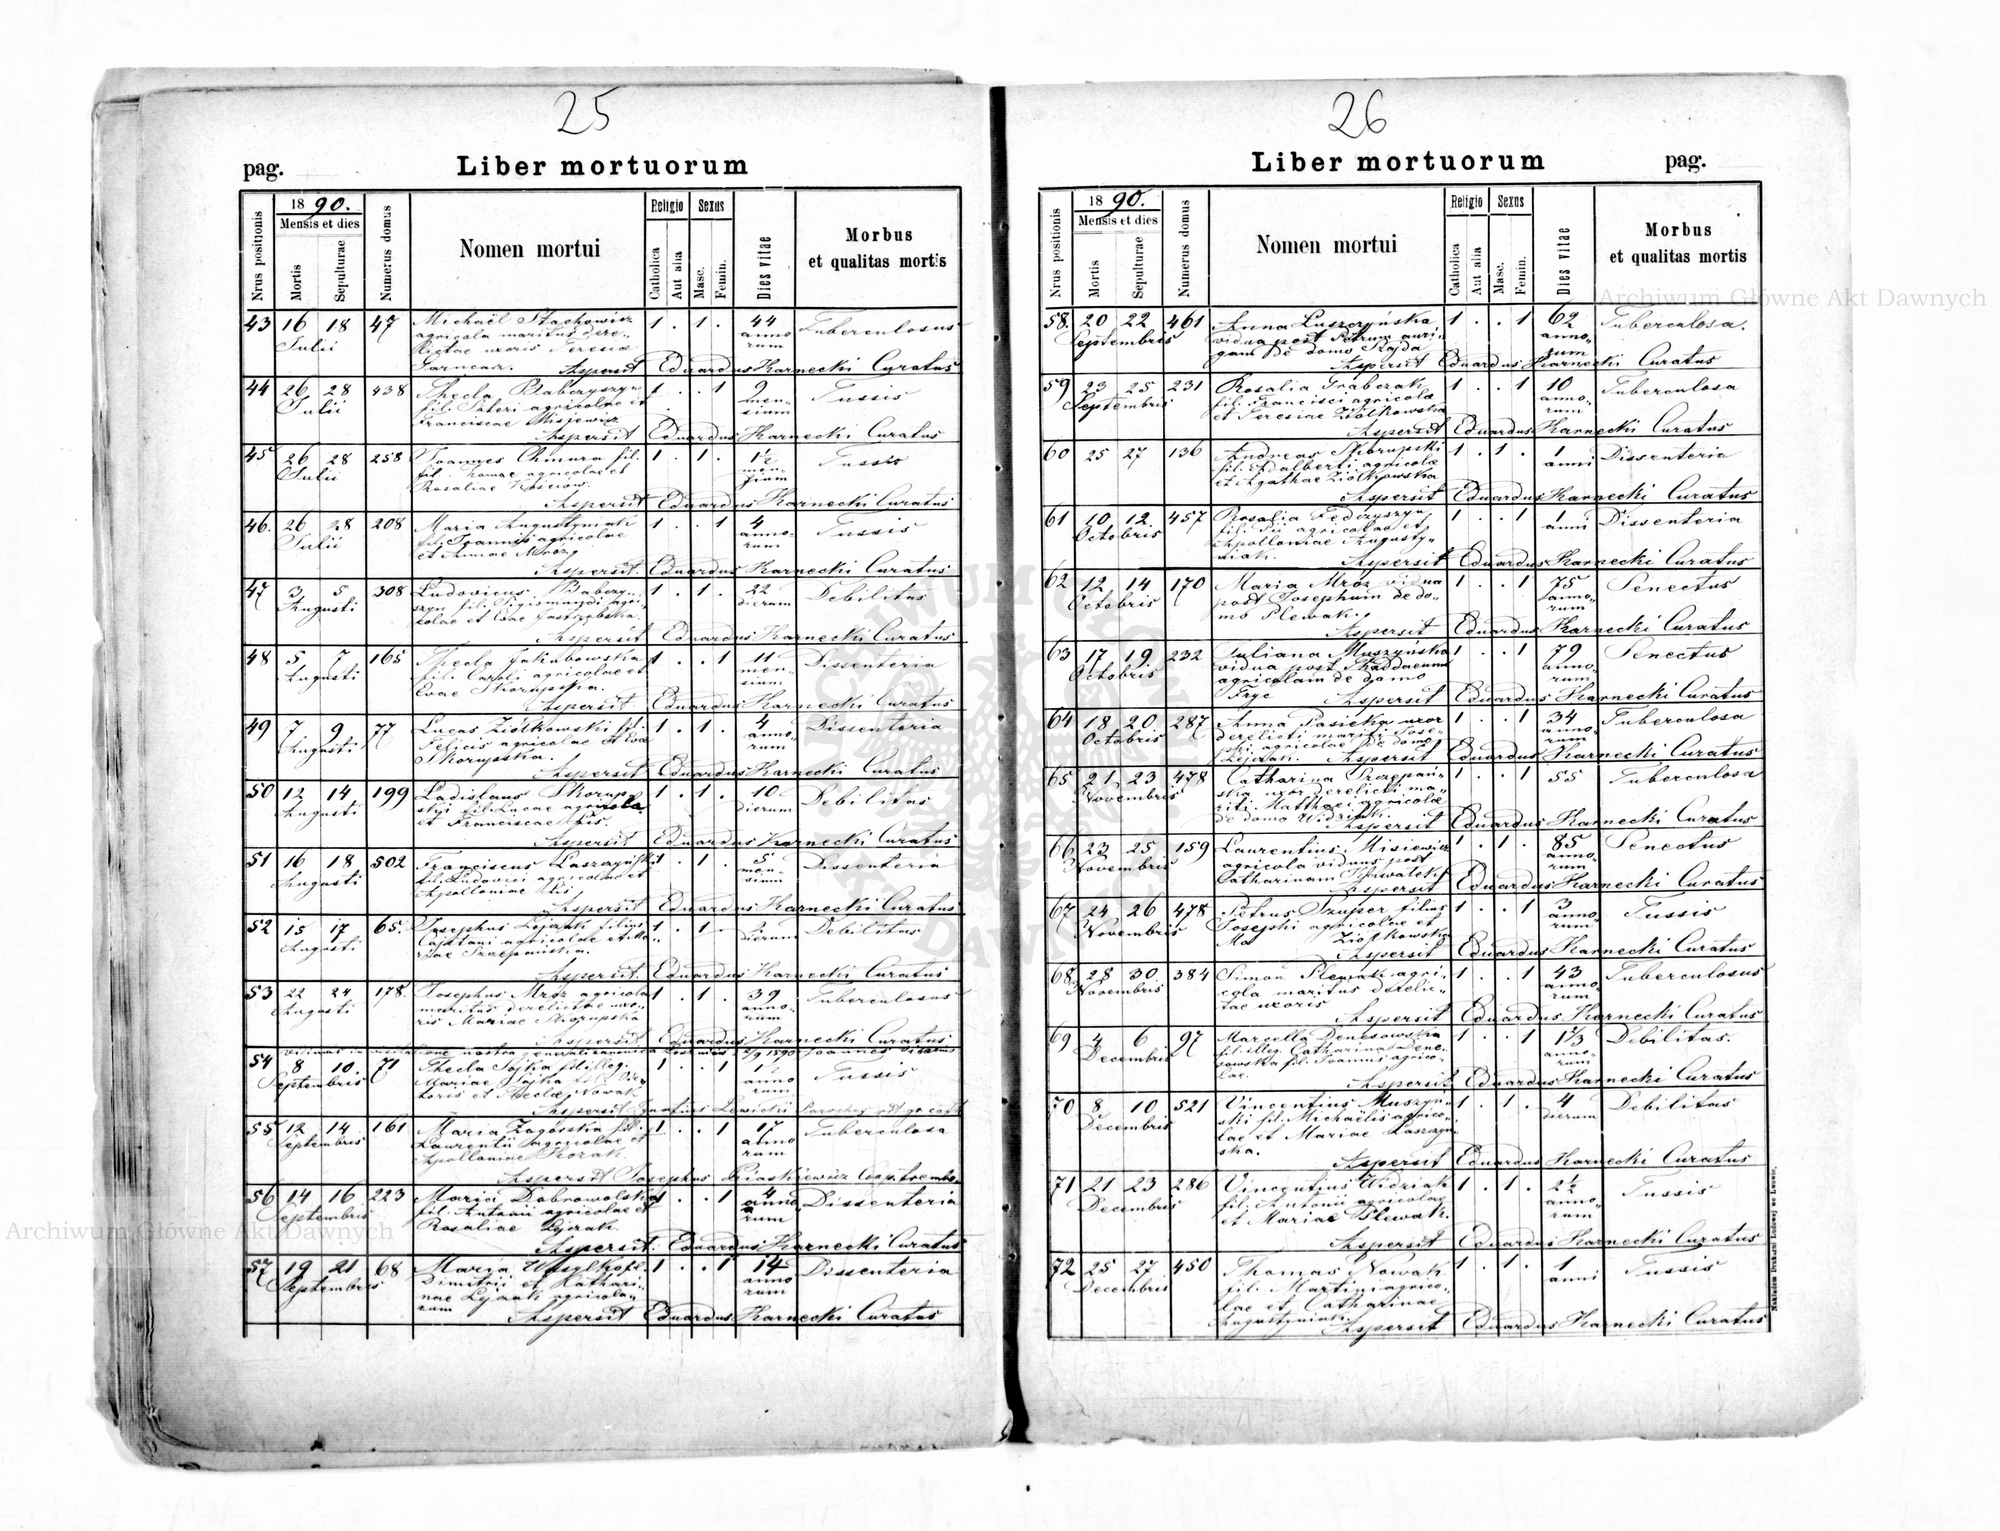 25
pag.
Liber mortuorum
Nrus positionis
1890.
Mensis et dies
Mortis
Sepulturae
Numerus domus
Nomen mortui
Religio
Catholica
Aut alia
Sexus
Masc.
Femin.
Dies vitae
Morbus
et qualitas mortis
43 16 18 47 Michaël Stachowicz 1 . 1 . 44 Tuberculosus
Julii agricola maritus dere- anno
lictae uxoris Teresiae rum
Aspersit Eduardus Karnecki Curatus
44 26 28 438 Thecla Babczyszyn 1 . . 1 9 Tussis
Julii fil. Petri agricolae et men-
Franciscae Misiewicz sium
Aspersit Eduardus Karnecki Curatus
45 26 28 258 Joannes Chmura fil. 1 . 1 . 1½ Tussis
Julii fil. Thomae agricolae et men-
Rosaliae Kościów. sium
Aspersit Eduardus Karnecki Curatus
46. 26 28 208 Maria Augustyniak 1 . . 1 4 Tussis
Julii fil. Joannis agricolae anno-
et Annae Mroz, rum
Aspersit. Eduardus Karnecki Curatus
47 3 5 308 Ludovicus Babczy- 1 . 1 . 22 Debilitas
Augusti szyn fil. Sigismundi agri- dierum
colae et Evae Jastrzebska.
Aspersit Eduardus Karnecki Curatus
48 5 7 165 Thecla Jakubowska 1 . . 1 11 Dissenteria
Augusti fil. Caroli agricolae et men-
Evae Skorupska. sium
Aspersit Eduardus Karnecki Curatus
49 7 9 77 Lucas Ziółkowski fil. 1 . 1 . 4 Dissenteria
Augusti Felicis agricolae et Evae anno-
Skorupska. rum
Aspersit Eduardus Karnecki Curatus
50 12 14 199 Ladislaus Skorup- 1 . 1 . 10 Debilitas
Augusti fil. Lucae agricola dierum
et Franciscae Lis.
Aspersit Eduardus Karnecki Curatus
51 16 18 502 Franciscus Laszczyński 1 . 1 . 5 Dissenteria
Augusti fil. Ludovici agricolae et men-
Apolloniae Lis sium
Aspersit Eduardus Karnecki Curatus
52 15 17 65. Josephus Lejzak filius 1 . 1 . 2 Debilitas
Augusti Cajetani agricolae et Ma- dierum
riae Szczepańska.
Aspersit. Eduardus Karnecki Curatus
53 22 24 178. Josephus Mróz agricola 1 . 1 . 39 Tuberculosus
Augusti maritus derelictae uxo- anno-
ris Mariae Skorupska rum
Aspersit Eduardus Karnecki Curatus
nostra generali 1890 Joannes
54 8 10. 71 Thecla Sojka fil. illeg. 1 . . 1 1½ Tussis
Septembris Mariae Sojka fil. Vic- anno
toris et Theclae Nowak rum
Aspersit Ignatius Lewicki Parochus
55 12 14 161 Maria Zagórska fil. 1 . . 1 17 Tuberculosa
Septembris Laurentii agricolae et anno
Apolloniae Kozak. rum
Aspersit Josephus Piaskiewicz Coop.
56 14 16 223 Maria Dobrowolska 1 . . 1 4 Dissenteria
Septembris fil. Antonii agricolae et anno
Rosaliae Lejzak. rum
Aspersit. Eduardus Karnecki Curatus
57 19 21 68 Maria 1 . . 1 14 Dissenteria
Septembris Dimitrii et Kathari- anno
nae Lejzak agricola- rum
rum Aspersit Eduardus Karnecki Curatus
26
Liber mortuorum
pag.
Nrus positionis
1890.
Mensis et dies
Mortis
Sepulturae
Numerus domus
Nomen mortui
Religio
Catholica
Aut alia
Sexus
Masc.
Femin.
Dies vitae
Morbus
et qualitas mortis
58. 20 22 461 Anna Luszczyńska 1 . . 1 62 Tuberculosa.
Septembris vidua post Petrum auri- anno-
gam de domo Szajda rum
Aspersit Eduardus Karnecki Curatus
59 23 25 231 Rosalia Grabczak 1 . . 1 10 Tuberculosa
Septembris fil. Francisci agricolae anno-
et Teresiae Ziółkowska rum
Aspersit Eduardus Karnecki Curatus
60 25 27 136 Andreas Skorupski 1 . 1 . 1 Dissenteria
fil. Adalberti agricolae anni
et Agathae Ziółkowska
Aspersit Eduardus Karnecki Curatus
61 10 12. 457 Rosalia Fedczyszyn 1 . . 1 1 Dissenteria
Octobris fil. Pii agricolae et anni
Apolloniae Augusty-
niak. Aspersit Eduardus Karnecki Curatus
62 12 14 170 Maria Mróz vidua 1 . . 1 75 Senectus
Octobris post Josephum de do- anno-
mo Plewak, rum
Aspersit Eduardus Karnecki Curatus
63 17 19 232 Juliana Muszyńska 1 . . 1 79 Senectus
Octobris vidua post Thaddaeum anno-
agricolam de domo rum
Fryc Aspersit Eduardus Karnecki Curatus
64 18 20 287 Anna Pasieka uxor 1 . . 1 34 Tuberculosa
Octobris derelicti mariti Jose- anno-
phi agricolae de domo rum
Lejzak. Aspersit Eduardus Karnecki Curatus
65 21 23 478 Catharina Szczepań- 1 . . 1 55 Tuberculosa
Novembris ska uxor derelicti ma-
riti Matthaei agricolae
de domo Widziak. Aspersit Eduardus Karnecki Curatus
66 23 25 159 Laurentius Misiewicz 1 . 1 . 85 Senectus
Novembris agricola viduus post anno-
Catharinam rum
Aspersit Eduardus Karnecki Curatus
67 24 26 478 Petrus Szuper filius 1 . . 1 3 Tussis
Novembris Josephi agricolae et anno-
Ma Ziółkowska rum
Aspersit Eduardus Karnecki Curatus
68 28 30 384 Simon Plewak agri- 1 . . 1 43 Tuberculosus
Novembris cola maritus derelic- anno-
tae uxoris rum
Aspersit Eduardus Karnecki Curatus
69 4 6 97 Marcella Denesowska 1 . . 1 1⅓ Debilitas.
Decembris fil. illeg. Catharinae Dene- anno-
sowska fil. Joannis agrico- rum
lae. Aspersit Eduardus Karnecki Curatus
70 8 10 521 Vincentius Muszyń- 1 . 1 . 4 Debilitas
Decembris ski fil. Michaëlis agrico- dierum
lae et Mariae Laszczyń-
ska. Aspersit Eduardus Karnecki Curatus
71 21 23 286 Vincentius Widziak 1 . 1 . 2½ Tussis
Decembris fil. Antonii agricolae anno-
et Mariae Plewak. rum
Aspersit Eduardus Karnecki Curatus
72 25 27 450 Thomas Nowak 1 . 1 . 1 Tussis
Decembris fil. Martini agrico- anni
lae et Catharinae
Augustyniak. Aspersit Eduardus Karnecki Curatus
Nakładem Drukarni Ludowej we Lwowie.
Archiwum Główne Akt Dawnych
Archiwum Główne Akt Dawnych
ARCHIWUM GŁÓWNE AKT DAWNYCH